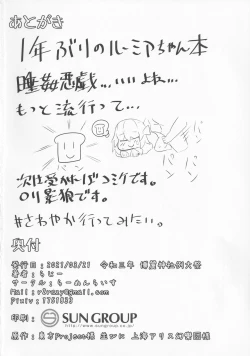 あとがき
1年ぶりのルーミアちゃん本
睡姦悪戯…いいよね…
もっと流行って…
パン
パン
次は受かればコミケです。
ロリ影狼です。
#さわやか行ってみたい。
奥付
発行日：2021/03/21 令和三年 博麗神社例大祭
著者：らじー
サークル：らーめんらいす
印刷：SUN GROUP
http://www.sungroup.co.jp/
原作：東方Project様 並びに 上海アリス幻樂団様